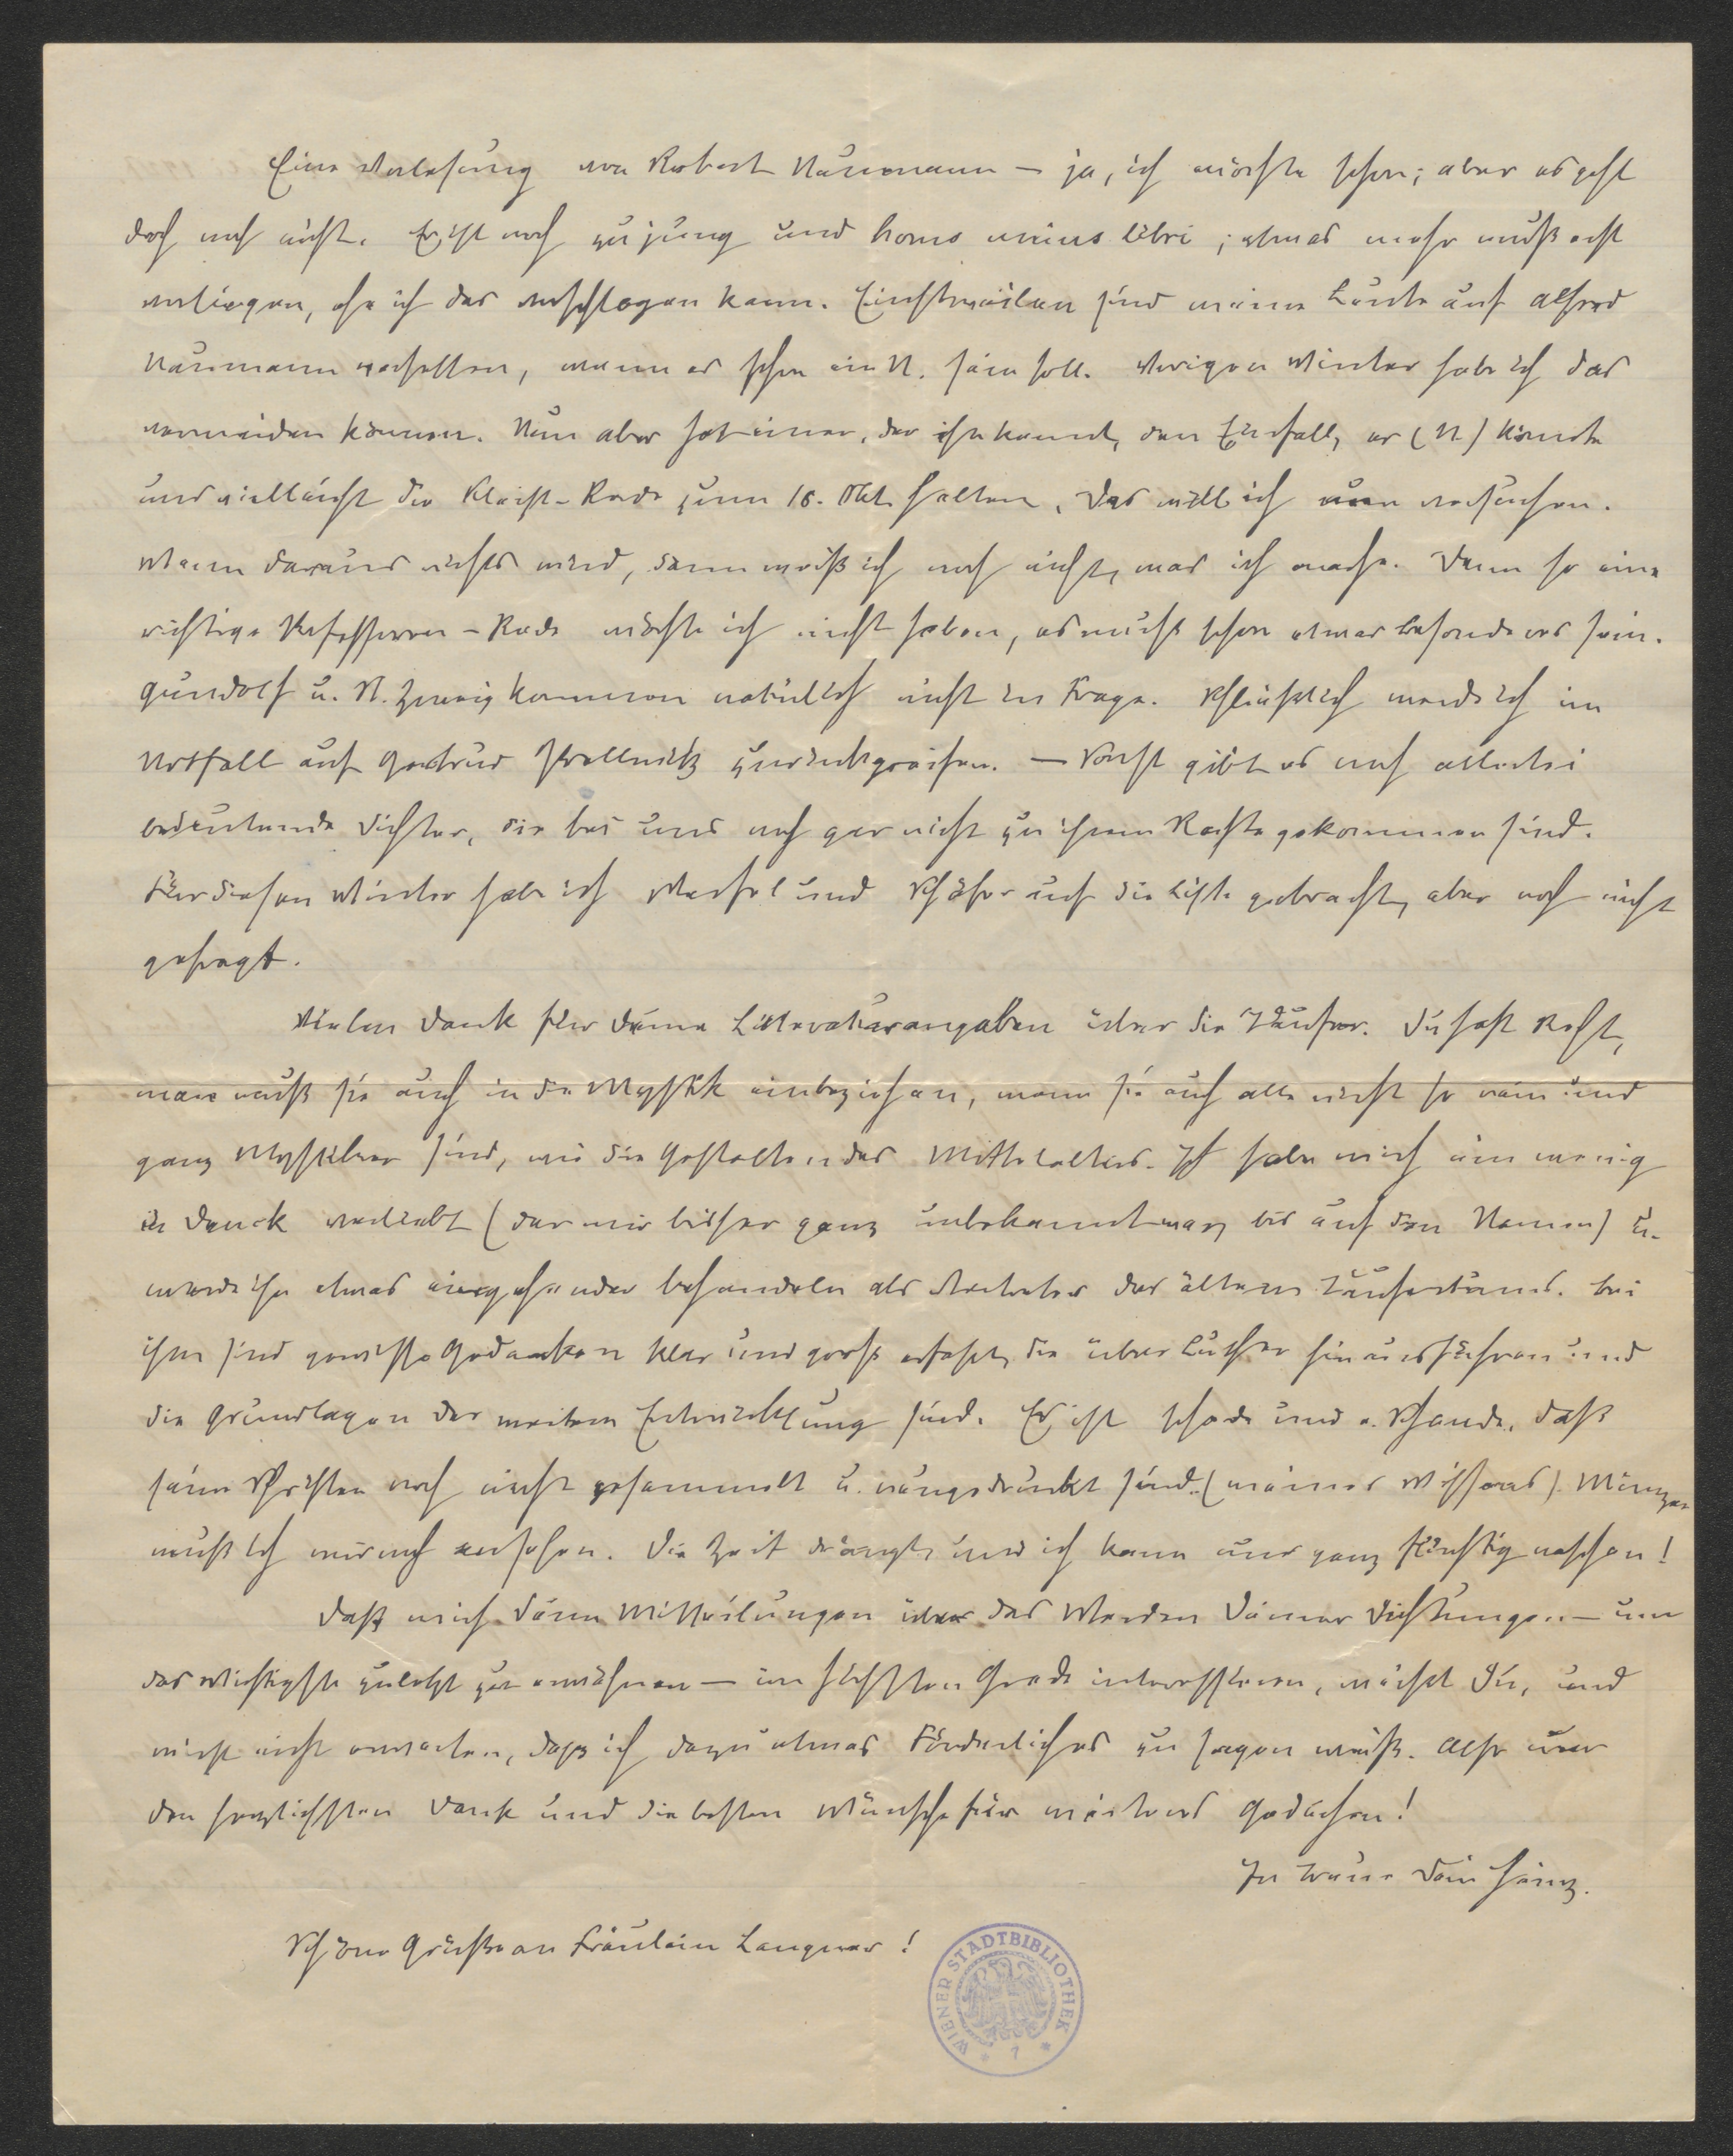 Eine Vorlesung von Robert Naumann — ja, ich möchte schon; aber es geht
doch noch nicht. Er ist noch zu jung und homo unius libri; etwas mehr muß erst
vorliegen, ehe ich das vorschlagen kann. Einstweilen sind meine Leute auf Alfred
Naumann versessen, wenn es schon ein N. sein soll. Vorigen Winter hab ich das
vermeiden können. Nun aber hat einer, der ihn kennt, den Einfall, er (N) könnte
uns vielleicht die Kleist-Rede zum 18. Okt. halten. Das will ich nun versuchen.
Wenn daraus nichts wird, dann weiß ich noch nicht, was ich mache. Denn so eine
richtige Professoren-Rede möchte ich nicht haben, es muß schon etwas besonderes sein.
Gundolf u. St. Zweig kommen natürlich nicht in Frage. Schließlich werde ich im
Notfall auf Gertrud Prellwitz zurückgreifen. — Sonst gibt es noch allerlei
bedeutende Dichter, die bei uns noch gar nicht zu ihrem Rechte gekommen sind.
Für diesen Winter hab ich Werfel und Schäfer auf die Liste gebracht, aber noch nicht
gefragt.
Vielen Dank für Deine Litteraturangaben über die Täufer. Du hast Recht,
man muß sie auch in die Mystik einbeziehen, wenn sie auch alle nicht so rein und
ganz Mystiker sind, wie die Gestalten des Mittelalters. Ich habe mich ein wenig
in Denck verliebt (der mir bisher ganz unbekannt war, bis auf den Namen) u.
werde ihn etwas eingehender behandeln als Vertreter des ältern Täufertums. Bei
ihm sind gewisse Gedanken klar und groß erfaßt, die über Luther hinausführen und
die Grundlagen der weitern Entwicklung sind. Es ist schade und e. Schande, daß
seine Schriften noch nicht gesammelt u. neugedruckt sind. (meines Wissens). Münzer
muß ich mir noch ansehen. Die Zeit drängt, und ich kann nur ganz flüchtig naschen!
Daß mich Deine Mitteilungen über das Werden Deiner Dichtungen — um
das Wichtigste zuletzt zu erwähnen — im höchsten Grade interessieren, weißt Du, und
wirst nicht erwarten, daß ich dazu etwas Förderliches zu sagen weiß. Also nur
den herzlichsten Dank und die besten Wünsche für weiteres Gedeihen!
In Treue Dein Heinz.
Schöne Grüße an Fräulein Langner!
WIENER STADTBIBLIOTHEK
* 7 *